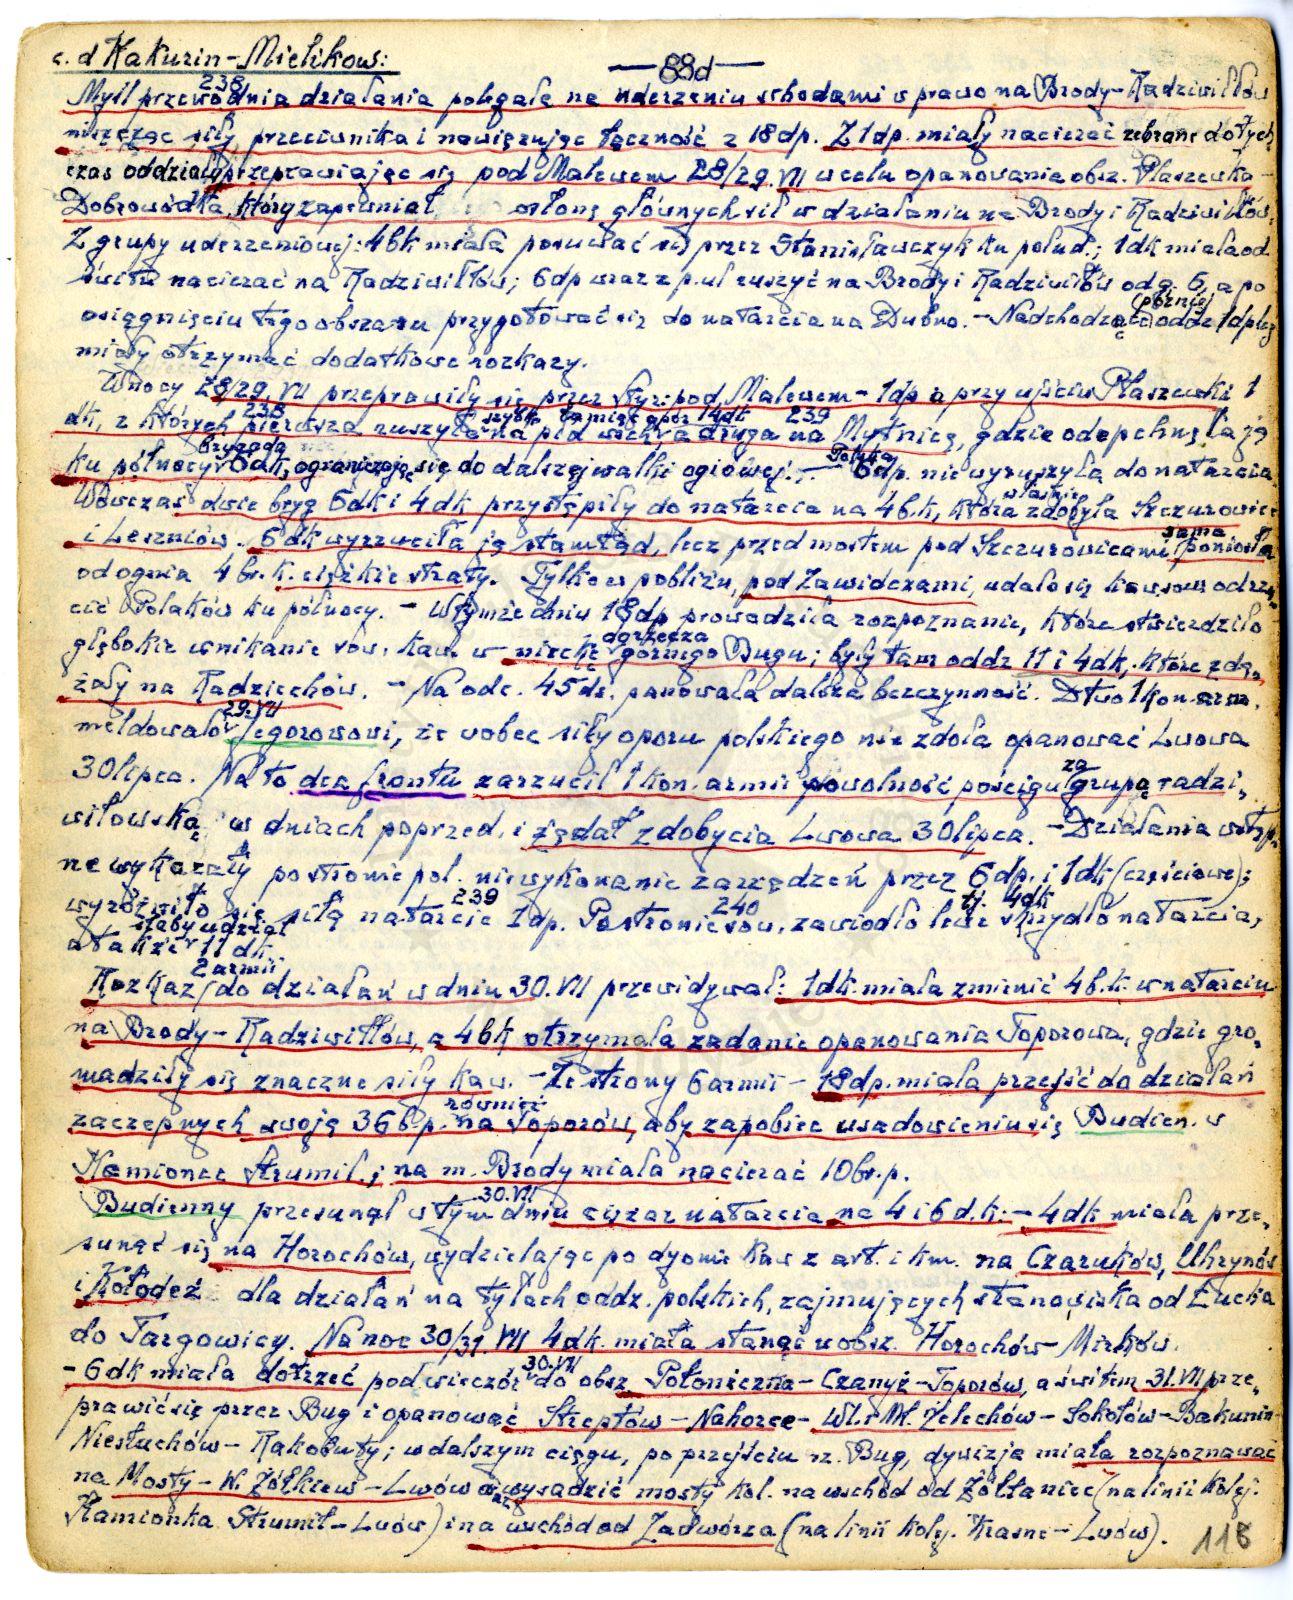 c. d Kakurin-Mielikow:
— 88d —
238
Myśl przewodnia działania polegała na uderzeniu schodami w prawo na Brody-Radziwiłłów
niszcząc siły przeciwnika i nawiązując łączność z 18dp. Z 1dp. miały nacierać zebrane dotych
czas oddziały przeprawiając się pod Malewem 28/29.VII w celu opanowania obsz. Płaszewka-
Dobrowódka, który zapewniał osłonę głównych sił w działaniu na Brody i Radziwiłłów.
Z grupy uderzeniowej: 4bk miała posuwać się przez Stanisławczyk ku połud.; 1dk miała od
świtu nacierać na Radziwiłłów; 6dp wraz z p.uł ruszyć na Brody i Radziwiłłów od g. 6, a po
osiągnięciu tego obszaru przygotować się do natarcia na Dubno. - Nadchodzące (później) oddz 1dpleg
miały otrzymać dodatkowe rozkazy.
W nocy 28/29.VII przeprawiły się przez Styr: pod Malewem - 1dp a przy ujściu Płaszewki 1
238 szybko łamiąc opór 14dk 239
dk, z których pierwsza ruszyła na płd wsch a druga na Mytnicę, gdzie odepchnęła ją
brygada Polska
ku północy 6dk, ograniczając się do dalszej walki ogniowej. - 6dp. nie wyruszyła do natarcia
właśnie
Wówczas dwie bryg 6dk i 4dk przystąpiły do natarcia na 4b.k, która zdobyła Szczurowice
sama
i Leszniów. 6dk wyrzuciła ją stamtąd, lecz przed mostem pod Szczurowicami poniosła
od ognia 4br.k. ciężkie straty. Tylko w pobliżu, pod Zawidczami, udało się kaw sow odrzu,
cić Polaków ku północy. - W tymże dniu 18dp prowadziła rozpoznanie, które stwierdziło
dorzecza
głębokie wnikanie sow. kaw w górnego Bugu; były tam oddz 11 i 4dk, które zdą,
żały na Radziechów. - Na odc. 45ds. panowała dalsza bezczynność. Dtwo 1kon.arm.
29.VII
meldowało Jegorowowi, że wobec siły oporu polskiego nie zdoła opanować Lwowa
za
30 lipca. Na to dca frontu zarzucił 1kon. armii powolność pościgu grupą radzi,
wiłowską w dniach poprzed. i żądał zdobycia Lwowa 30 lipca. - Działania wstęp,
ne wykazały po stronie pol. niewykonanie zarządzeń przez 6dp. i 1dk (częściowe);
239 240 tj. 4dk
wyróżniło się siłą natarcie 1dp. Po stronie sow. zawiodło lewe skrzydło natarcia,
słaby udział
a także 11dk.
2 armii
Rozkaz do działań w dniu 30.VII przewidywał: 1dk. miała zmienić 4b.k. w natarciu
na Brody-Radziwiłłów, a 4bk otrzymała zadanie opanowania Toporowa, gdzie gro,
madziły się znaczne siły kaw. - Ze strony 6 armii - 18dp. miała przejść do działań
również
zaczepnych swoją 36bp. na Toporów, aby zapobiec usadowieniu się Budien. w
Kamionce Strumił.; na m. Brody miała nacierać 10br.p.
30.VII
Budienny przesunął w tym dniu ciężar natarcia na 4 i 6 d.k: - 4dk miała prze,
sunąć się na Horochów, wydzielając po dyonie kaw z art. i km. na Czaruków, Uhrynów
i Kołodeż dla działań na tyłach oddz. polskich, zajmujących stanowiska od Łucka
do Targowicy. Na noc 30/31 VII 4dk. miała stanąć w obsz. Horochów-Mirków.
30.VII
- 6dk miała dotrzeć pod wieczór do obsz Połoniczna-Czanyż-Toporów, a świtem 31.VII prze,
prawić się przez Bug i opanować Streptów-Nahorce-Wl. i Mł. Żelechów-Sokołów-Bakunin
Niesłuchów-Rakobuty; w dalszym ciągu, po przejściu rz. Bug, dywizja miała rozpoznawać
na Mosty-W. Żółkiew-Lwów oraz wysadzić mosty kol. na wschód od Żółtaniec (na linii kolej.
Kamionka Strumił-Lwów) i na wschód od Zadwórza (na linii kolej. Krasne-Lwów).
118